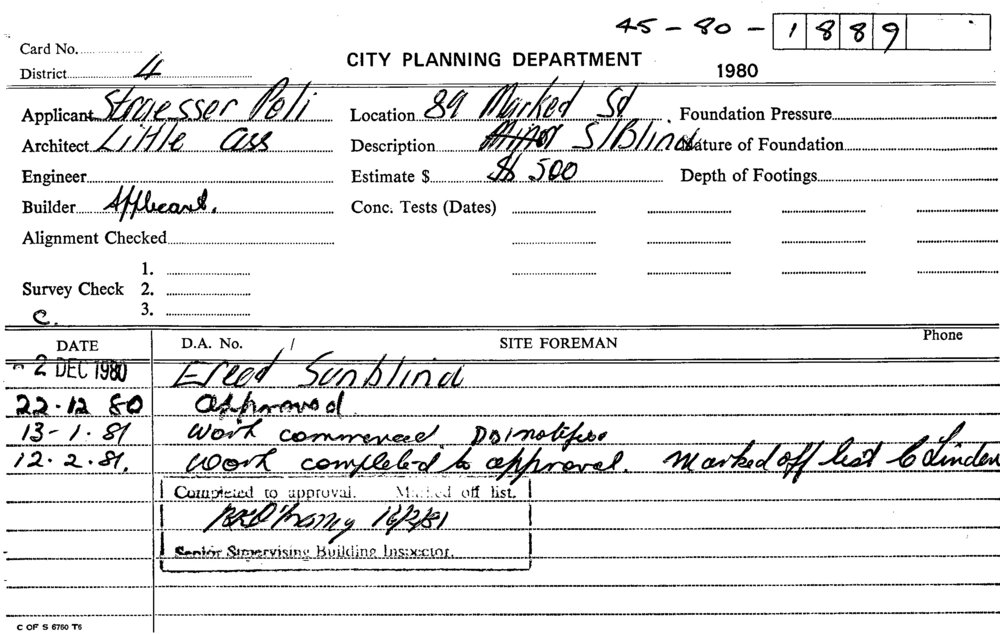 45-80-1889
Card No.
District 4
CITY PLANNING DEPARTMENT
1980
Applicant Straesser Peli
Location 89 Marked St
Foundation Pressure
Architect Little Ass
Description Minor S/Blind
Nature of Foundation
Engineer
Estimate $ $ 500
Depth of Footings
Builder Applicant.
Conc. Tests (Dates)
Alignment Checked
1.
Survey Check 2.
3.
C.
DATE D.A. No. / SITE FOREMAN Phone
2 DEC 1980 Ereed Sunblind
22.12 80 approved
13-1.81 Work commenced.
12.2.81. Work completed to approval. Marked off list C Linden
Completed to approval. Marked off list.
16/2/81
Senior Supervising Building Inspector.
C OF S 6760 T6